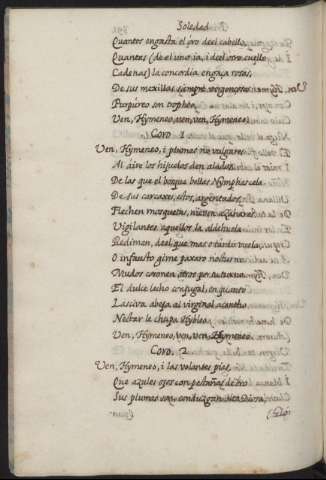 Soledad
Quantos engasta el oro del cabello,
Quantas (de el uno ia, i de el otro cuello
Cadenas) la concordia engaça rosas,
De sus mexillas siempre vergonçosas
Purpureo son tropheo.
Ven, Hymeneo, ven, ven, Hymeneo.
Coro. 1
Ven, Hymeneo, i plumas no vulgares
Al aire los hijuelos den alados
De las que el bosque bellas Nymphas cela
De sus carcaxes, estos, argentados
Flechen mosquetas, nieven azahares
Vigilantes aquellos la aldehuela
Rediman, del que mas o tardo vuela,
O infausto gime paxaro nocturno
Mudos coronen otros por su turno
El dulce lecho conjugal, en quanto
Lasciva abeja al virginal acantho
Nectar le chupa Hybleo.
Ven, Hymeneo, ven, ven, Hymeneo.
Coro. 2
Ven, Hymeneo, i las volantes pias,
Que azules ojos con pestañas de oro
Sus plumas son, conduzgan alta Diosa,